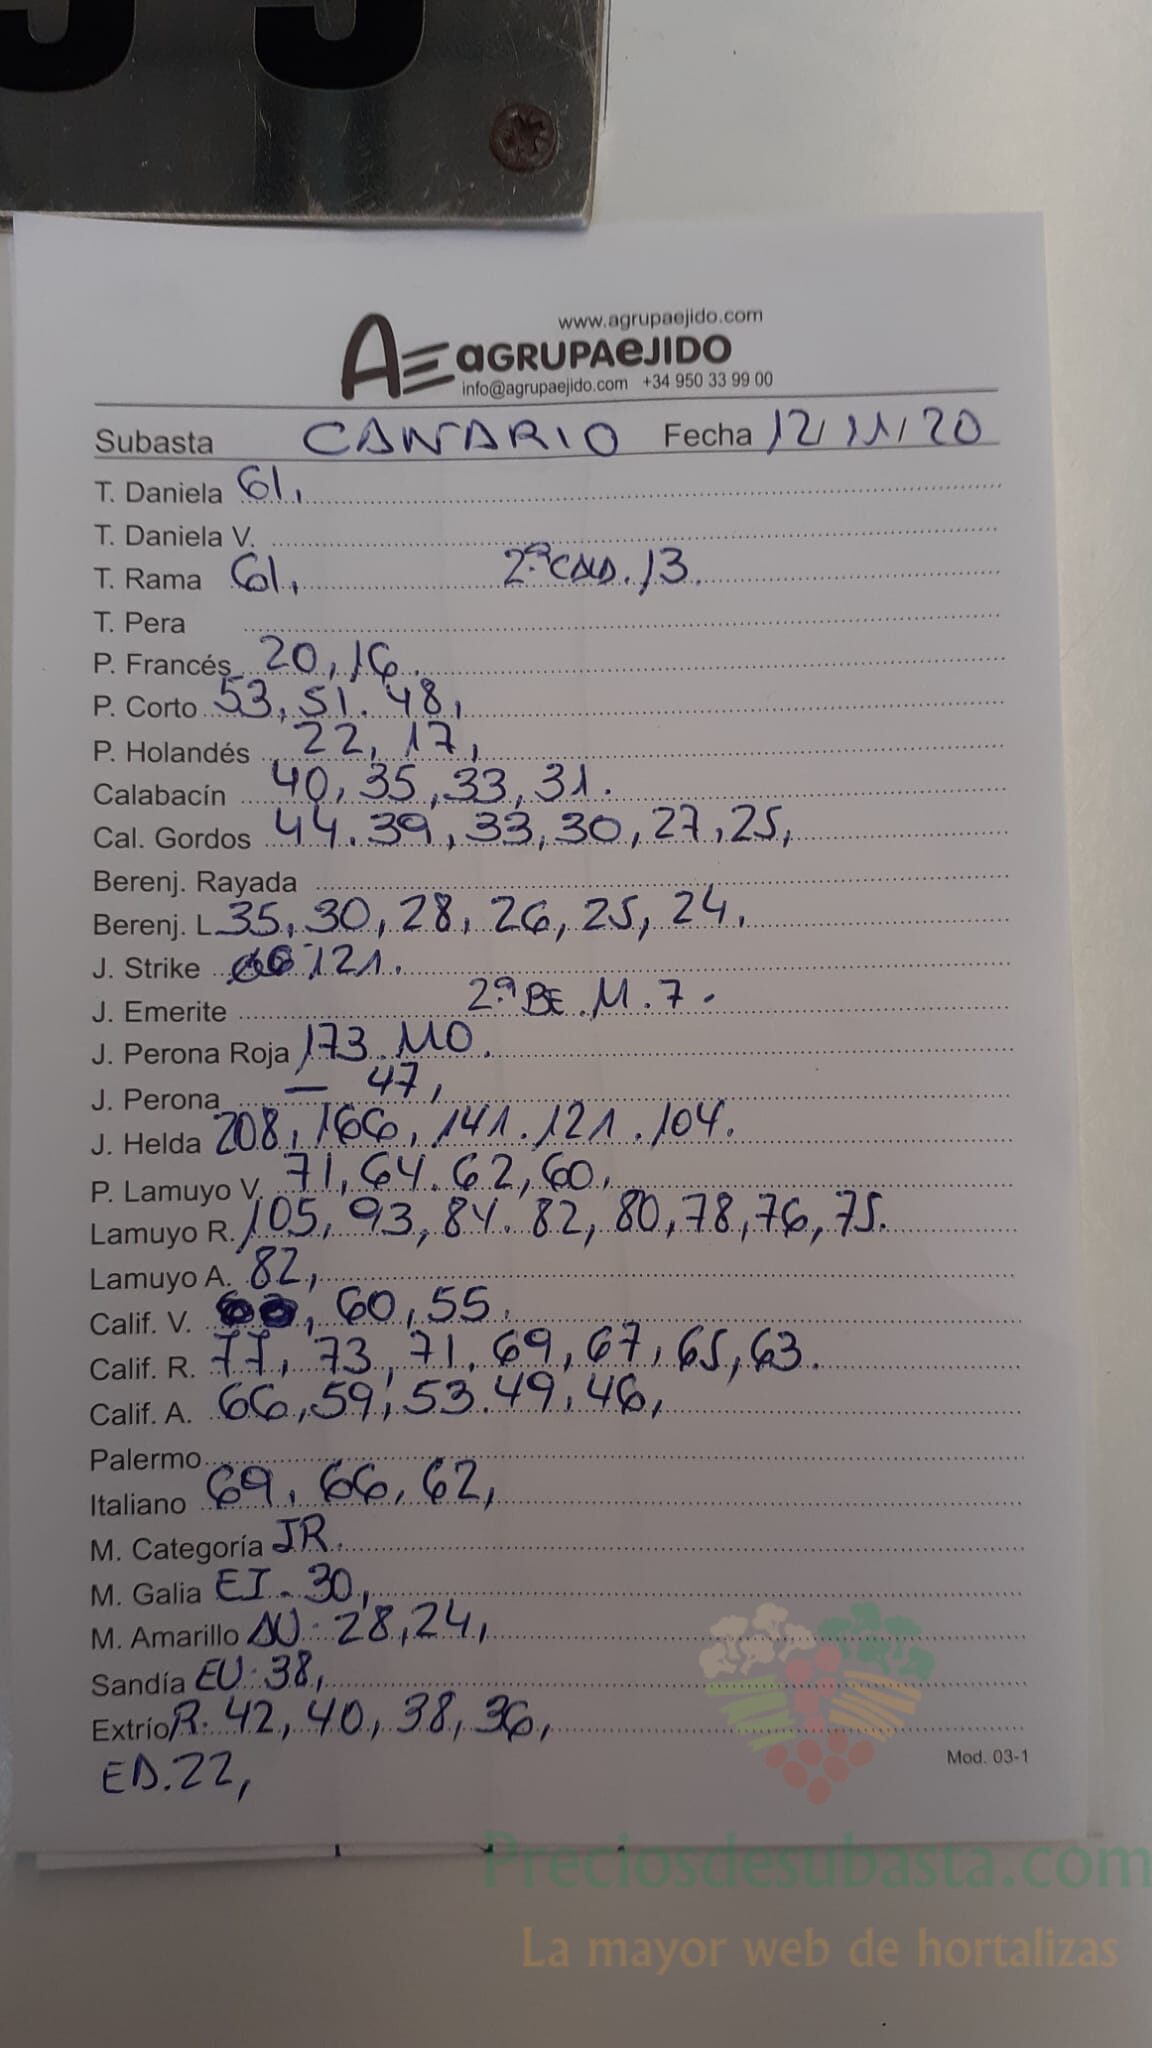 www.agrupaejido.com
AE aGRUPAeJIDO
info@agrupaejido.com +34 950 33 99 00
Subasta CANARIO Fecha 12/11/20
T. Daniela 61,
T. Daniela V.
T. Rama 61, 2ªCAD. 13.
T. Pera
P. Francés 20, 16.
P. Corto 53, 51. 48,
P. Holandés 22, 17,
Calabacín 40, 35, 33, 31.
Cal. Gordos 44. 39, 33, 30, 27, 25,
Berenj. Rayada
Berenj. L 35, 30, 28, 26, 25, 24.
J. Strike 121.
J. Emerite 2ª BE. M. 7.
J. Perona Roja 173. 110.
J. Perona — 47,
J. Helda 208, 166, 141. 121. 104.
P. Lamuyo V. 71, 64. 62, 60,
Lamuyo R. 105, 93, 84. 82, 80, 78, 76, 75.
Lamuyo A. 82,
Calif. V. , 60, 55.
Calif. R. 77, 73, 71, 69, 67, 65, 63.
Calif. A. 66, 59, 53. 49, 46,
Palermo
Italiano 69, 66, 62,
M. Categoría JR.
M. Galia EI. 30,
M. Amarillo 28, 24,
Sandía EU. 38,
Extrío R. 42, 40, 38, 36,
ED. 22,
Mod. 03-1
Preciosdesubasta.com
La mayor web de hortalizas